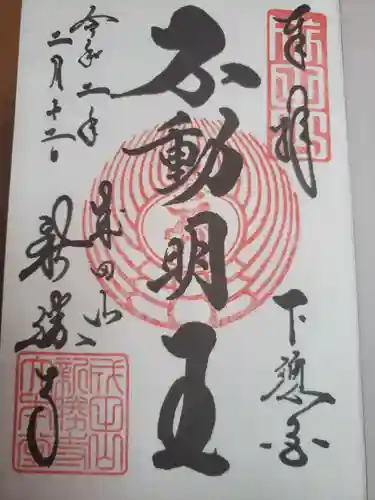 奉拝
下総国
不動明王
成田山
新勝寺
令和二年
二月十二日
成田山
新勝寺